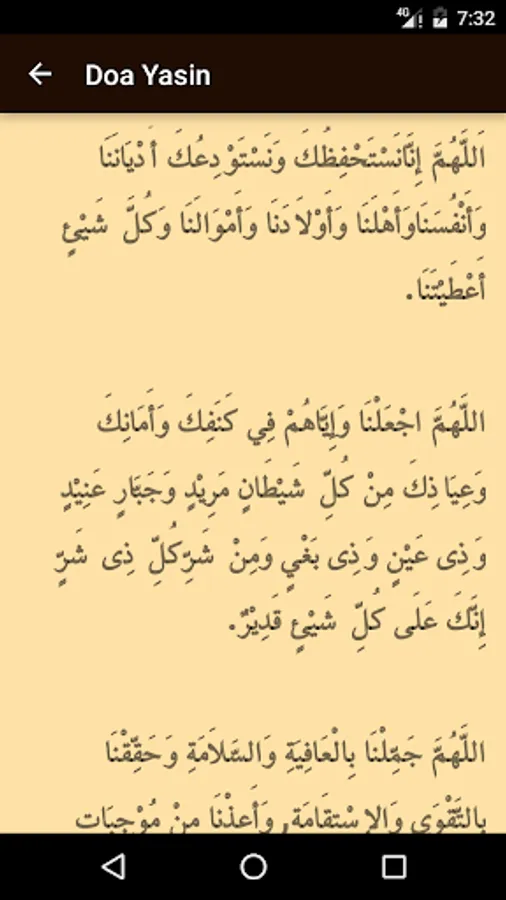 4G 7:32
Doa Yasin
اَللَّهُمَّ إِنَّانَسْتَحْفِظُكَ وَنَسْتَوْدِعُكَ أَدْيَانَنَا
وَأَنْفُسَنَاوَأَهْلَنَا وَأَوْلَادَنَا وَأَمْوَالَنَا وَكُلَّ شَيْئٍ
أَعْطَيْتَنَا.
اللَّهُمَّ اجْعَلْنَا وَإِيَّاهُمْ فِي كَنَفِكَ وَأَمَانِكَ
وَعِيَاذِكَ مِنْ كُلِّ شَيْطَانٍ مَرِيْدٍ وَجَبَّارٍ عَنِيْدٍ
وَذِى عَيْنٍ وَذِى بَغْيٍ وَمِنْ شَرِّكُلِّ ذِى شَرٍّ
إِنَّكَ عَلَى كُلِّ شَيْئٍ قَدِيْرٌ.
اللَّهُمَّ جَمِّلْنَا بِالْعَافِيَةِ وَالسَّلاَمَةِ وَحَقِّقْنَا
بِالتَّقْوَى وَالاِسْتِقَامَةِ وَأَعِذْنَا مِنْ مُوْجِبَاتِ